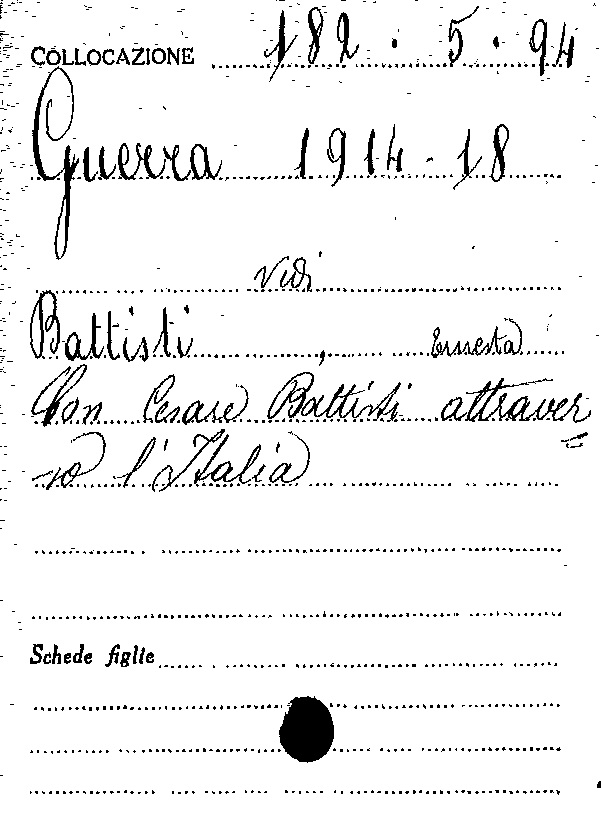 COLLOCAZIONE 182.5.94
Guerra 1914-18
Vedi
Battisti, Ernesta
Con Cesare Battisti attraver=
so l'Italia
Schede figlie